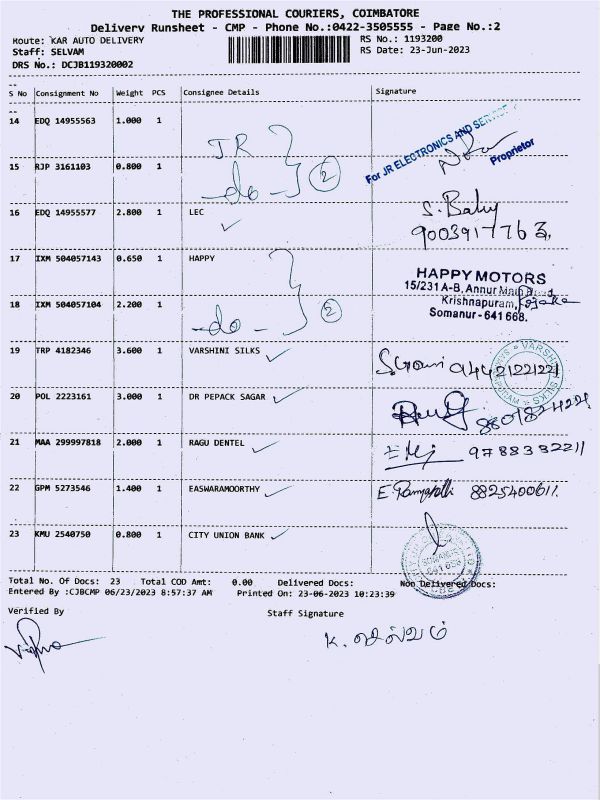 THE PROFESSIONAL COURIERS, COIMBATORE
Delivery Runsheet - CMP - Phone No.:0422-3505555 - Page No.:2
Route: KAR AUTO DELIVERY
RS No.: 1193200
Staff: SELVAM
RS Date: 23-Jun-2023
DRS No.: DCJB119320002
S No Consignment No Weight PCS Consignee Details Signature
14 EDQ 14955563 1.000 1
JR
For JR ELECTRONICS AND SERVICE
Proprietor
15 RJP 3161103 0.800 1
-do- 2
16 EDQ 14955577 2.800 1 LEC
S. Baby
9003917763
17 IXM 504057143 0.650 1 HAPPY
HAPPY MOTORS
15/231 A-B, Annur Main Road
Krishnapuram,
Somanur - 641 668.
18 IXM 504057104 2.200 1
-do- 2
19 TRP 4182346 3.600 1 VARSHINI SILKS
9442122122
20 POL 2223161 3.000 1 DR PEPACK SAGAR
21 MAA 299997818 2.000 1 RAGU DENTEL
9788332211
22 GPM 5273546 1.400 1 EASWARAMOORTHY
8825400611
23 KMU 2540750 0.800 1 CITY UNION BANK
Total No. Of Docs: 23 Total COD Amt: 0.00 Delivered Docs: Non Delivered Docs:
Entered By :CJBCMP 06/23/2023 8:57:37 AM Printed On: 23-06-2023 10:23:39
Verified By
Staff Signature
K. செல்வம்